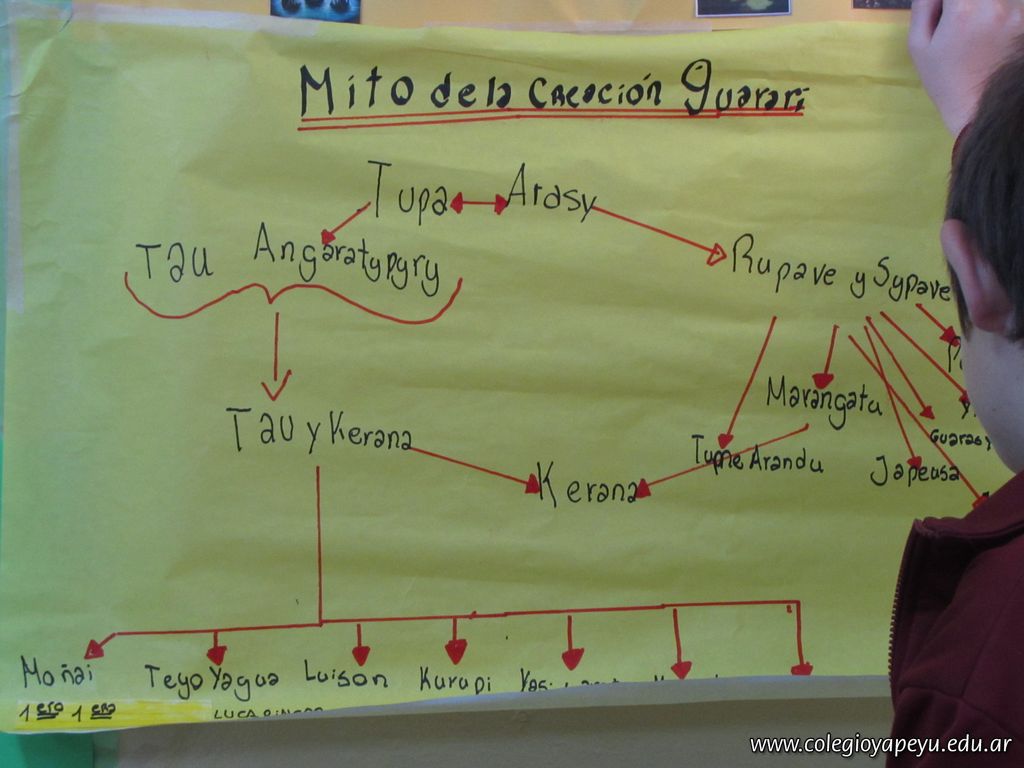 Mito de la Creación guarari
Tupa Arasy
Tau Angaratypyry
Rupave y Sypave
Marangatu
Tau y Kerana
Guarasy
Tume Arandu
Japeusa
Kerana
Moñai Teyo Yagua Luison Kurupi
1 ero 1 era
www.colegioyapeyu.edu.ar